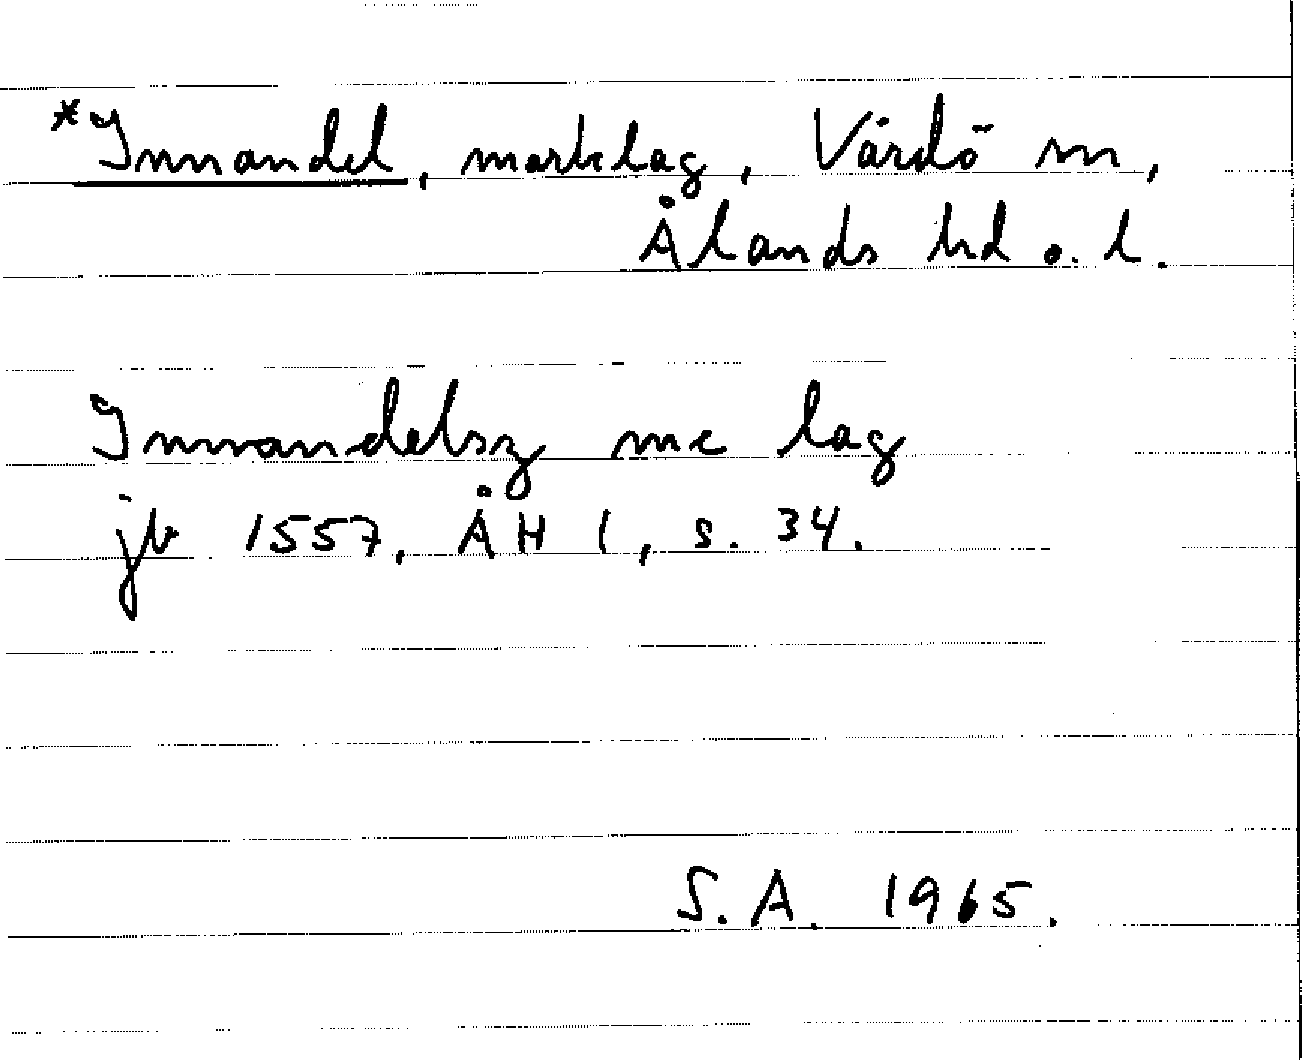 *Innandel, marklag, Vårdö sn,
Ålands hd o. l.
Innandelsz mc lag
jb 1557, ÅH 1, s. 34.
S.A. 1965.